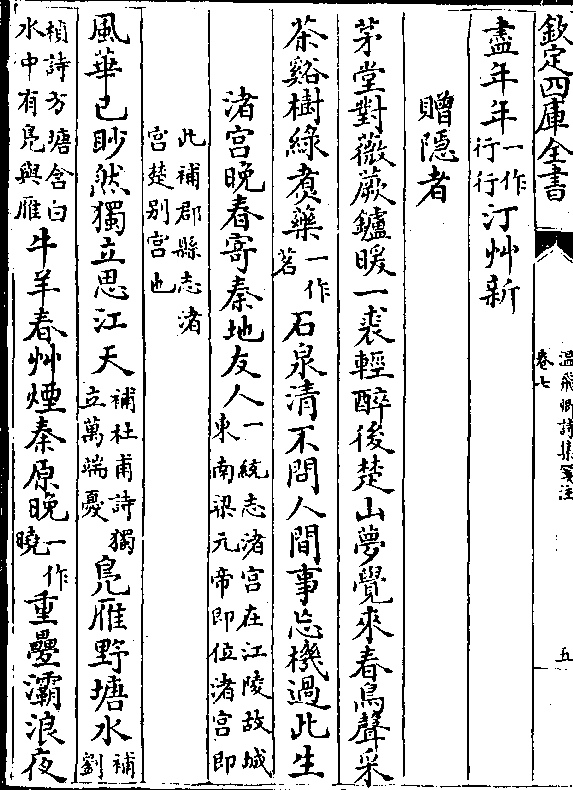 欽定四庫全書
溫飛卿詩集箋注
卷七
五
盡年年一作行行汀艸新
贈隱者
茅堂對薇蕨鑪暖一裘輕醉後楚山夢覺來春鳥聲采
茶谿樹綠煑藥一作茗石泉清不問人間事忘機過此生
渚宮晚春寄秦地友人一統志渚宮在江陵故城東南梁元帝即位渚宮即
此補郡縣志渚宮楚别宮也
風華已眇然獨立思江天補杜甫詩獨立萬端憂鳬雁野塘水補劉
楨詩方塘含白水中有鳬與雁牛羊春艸煙秦原晚一作曉重疊灞浪夜